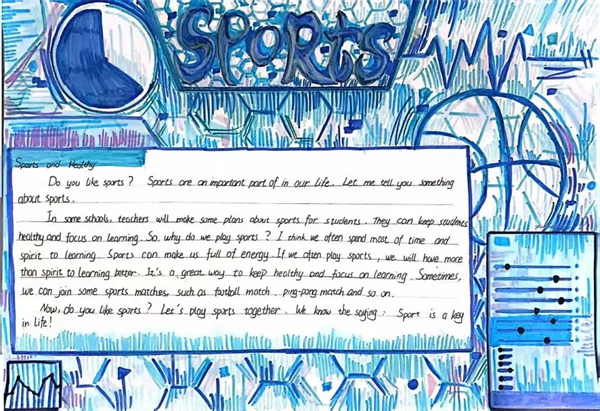 SPORTS
Sports and Healthy
Do you like sports? Sports are an important part of in our life. Let me tell you something
about sports.
In some schools, teachers will make some plans about sports for students. They can keep students
healthy and focus on learning. So, why do we play sports? I think we often spend most of time and
spirit to learning. Sports can make us full of energy. If we often play sports, we will have more
than spirit to learning better. It's a great way to keep healthy and focus on learning. Sometimes,
we can join some sports matches, such as football match, ping-pong match and so on.
Now, do you like sports? Let's play sports together. We know the saying: Sport is a key
in life!